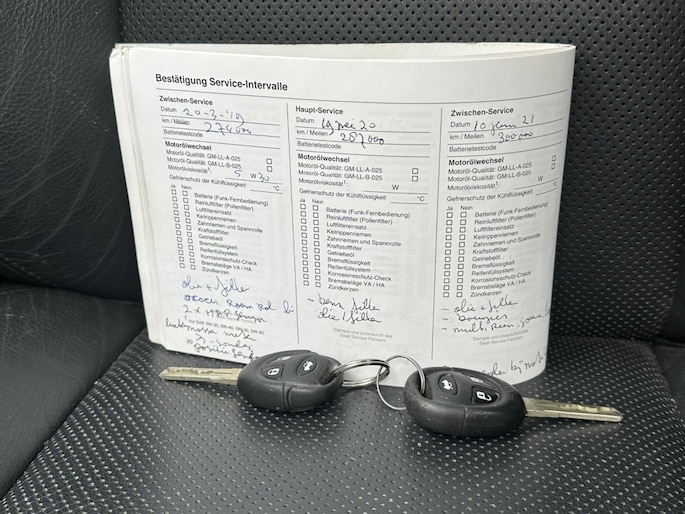 Bestätigung Service-Intervalle
Zwischen-Service
Datum 20-3-'19
km / Meilen 274000
Batterietestcode
Motorölwechsel
Motoröl-Qualität: GM-LL-A-025
Motoröl-Qualität: GM-LL-B-025
Motorölviskosität¹: 5 W 30
Gefrierschutz der Kühlflüssigkeit °C
Ja Nein
Batterie (Funk-Fernbedienung)
Reinluftfilter (Pollenfilter)
Luftfiltereinsatz
Keilrippenriemen
Zahnriemen und Spannrolle
Kraftstofffilter
Getriebeöl
Bremsflüssigkeit
Reifenfüllsystem
Korrosionsschutz-Check
Bremsbeläge VA / HA
Zündkerzen
olie + filter
2 x
Haupt-Service
Datum 19 mei 20
km / Meilen 287000
Batterietestcode
Motorölwechsel
Motoröl-Qualität: GM-LL-A-025
Motoröl-Qualität: GM-LL-B-025
Motorölviskosität¹: W
Gefrierschutz der Kühlflüssigkeit °C
Ja Nein
Batterie (Funk-Fernbedienung)
Reinluftfilter (Pollenfilter)
Luftfiltereinsatz
Keilrippenriemen
Zahnriemen und Spannrolle
Kraftstofffilter
Getriebeöl
Bremsflüssigkeit
Reifenfüllsystem
Korrosionsschutz-Check
Bremsbeläge VA / HA
Zündkerzen
olie / filter
Stempel und Unterschrift des
Saab Service Partners
Zwischen-Service
Datum 10 21
km / Meilen 300000
Batterietestcode
Motorölwechsel
Motoröl-Qualität: GM-LL-A-025
Motoröl-Qualität: GM-LL-B-025
Motorölviskosität¹: W
Gefrierschutz der Kühlflüssigkeit °C
Ja Nein
Batterie (Funk-Fernbedienung)
Reinluftfilter (Pollenfilter)
Luftfiltereinsatz
Keilrippenriemen
Zahnriemen und Spannrolle
Kraftstofffilter
Getriebeöl
Bremsflüssigkeit
Reifenfüllsystem
Korrosionsschutz-Check
Bremsbeläge VA / HA
Zündkerzen
- olie + filter
- bougies
- multi riem
Stempel und Unterschrift des
Saab Service Partners